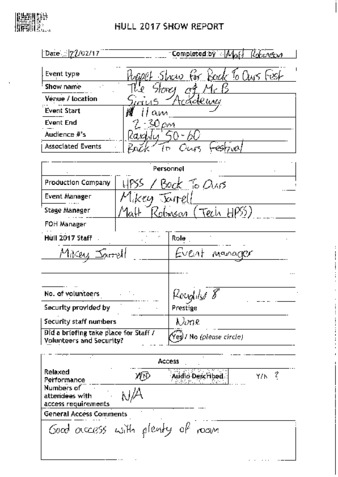 HULL 2017 SHOW REPORT
Date 22/02/17 Completed by Matt Robinson
Event type Puppet Show for Back To Ours Fest
Show name The Story of Mr B
Venue / location Sirius Academy
Event Start 11am
Event End 2:30pm
Audience #'s Roughly 50-60
Associated Events Back To Ours Festival
Personnel
Production Company HPSS / Back To Ours
Event Manager Mikey Jarrell
Stage Manager Matt Robinson (Tech HPSS)
FOH Manager
Hull 2017 Staff Role
Mikey Jarrell Event manager
No. of volunteers Roughly 8
Security provided by Prestige
Security staff numbers None
Did a briefing take place for Staff / Yes / No (please circle)
Volunteers and Security?
Access
Relaxed
Performance Y/N Audio Described Y/N ?
Numbers of
attendees with N/A
access requirements
General Access Comments
Good access with plenty of room